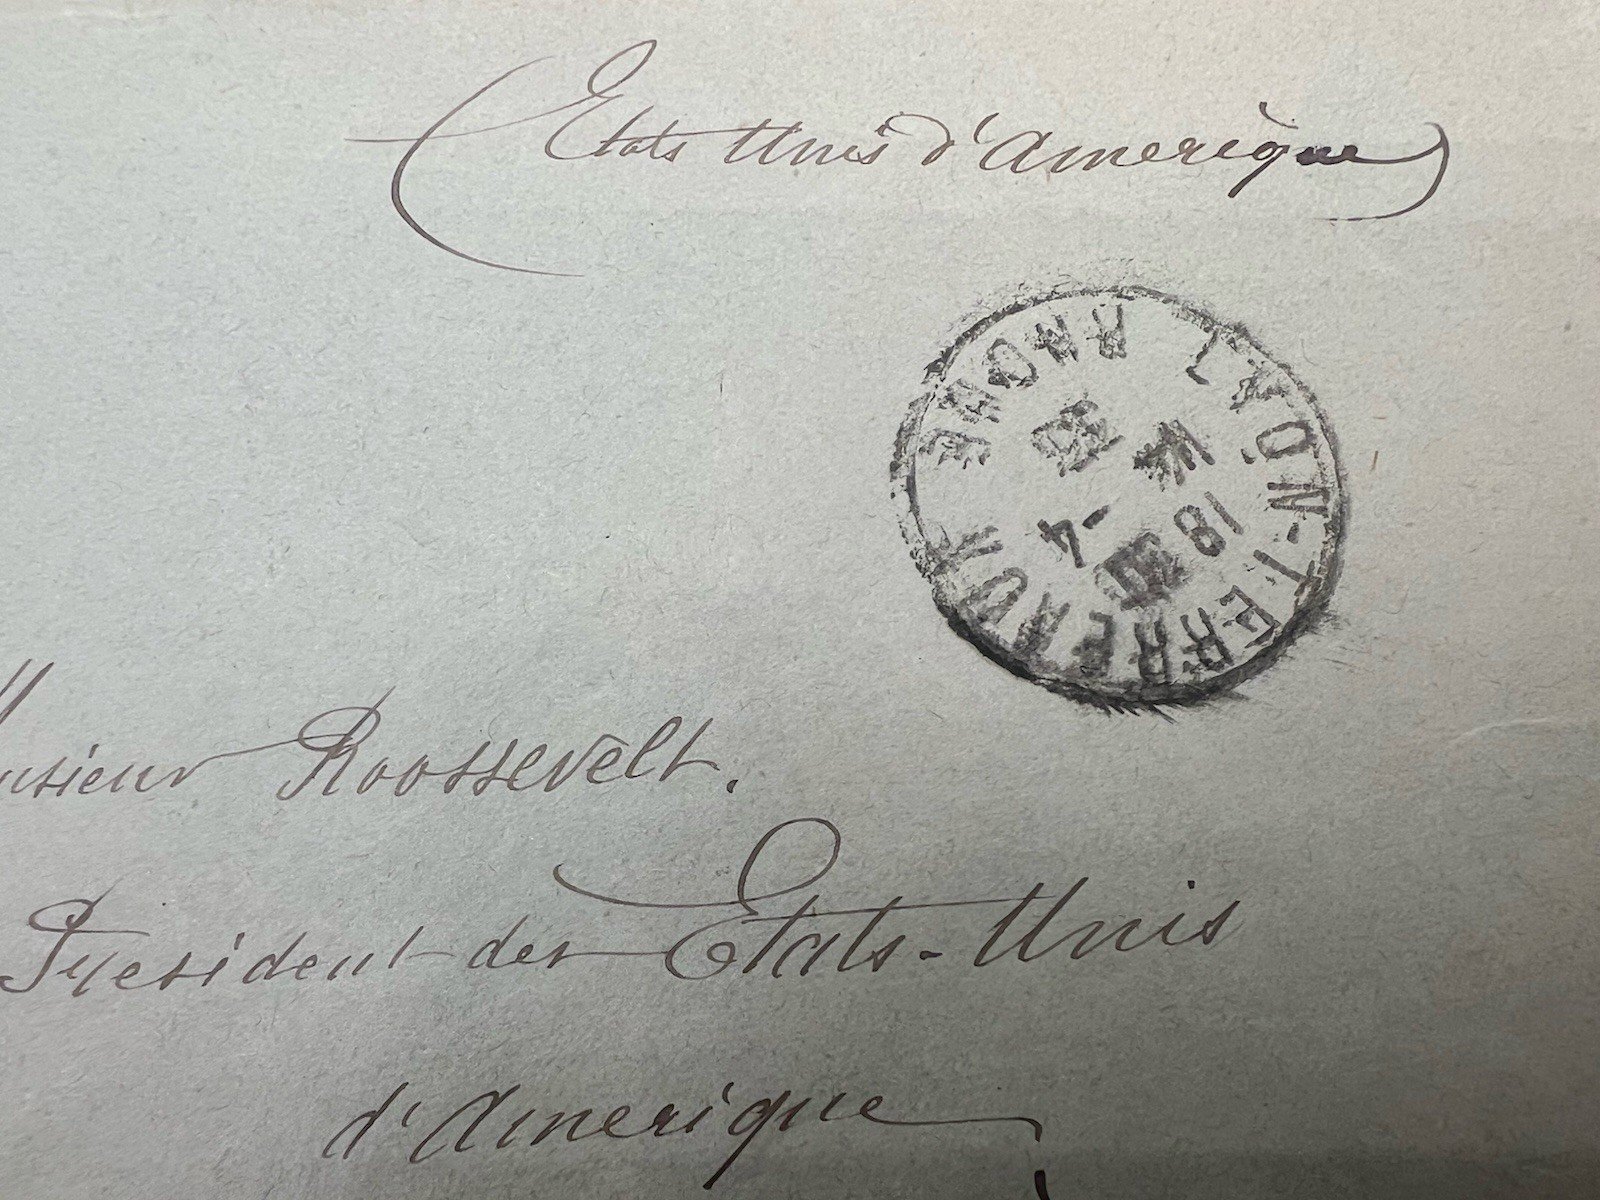 (Etats Unis d'Amerique)
LYON-TERREAUX
RHONE
18
-4
Monsieur Roossevelt.
President des Etats-Unis
d'Amerique